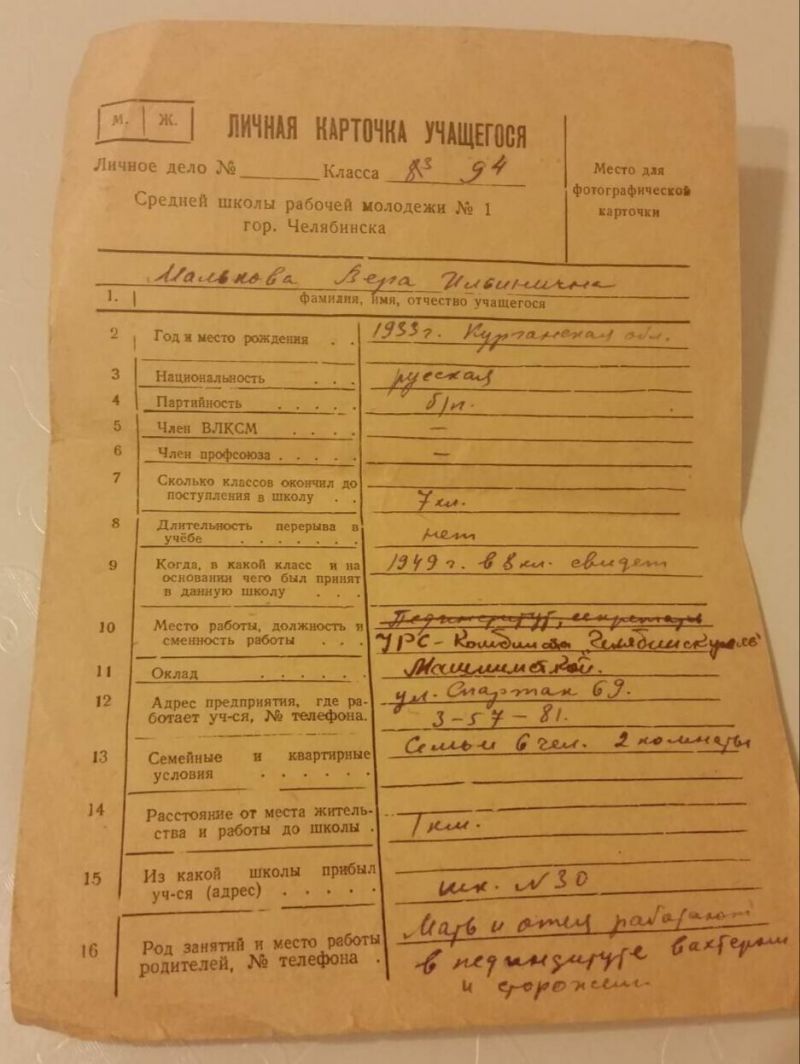 М. Ж.
ЛИЧНАЯ КАРТОЧКА УЧАЩЕГОСЯ
Личное дело № Класса 94
Место для
фотографической
карточки
Средней школы рабочей молодежи № 1
гор. Челябинска
Малькова Вера Ильинична
1. фамилия, имя, отчество учащегося
2 Год и место рождения . . 1933 г. Курганская обл.
3 Национальность . . . русская
4 Партийность . . . . . б/п.
5 Член ВЛКСМ . . . . —
6 Член профсоюза . . . . . —
7 Сколько классов окончил до
поступления в школу . . 7 кл.
8 Длительность перерыва в
учёбе . . . . . . . нет
9 Когда, в какой класс и на 1949 г. в 8 кл. свидет
основании чего был принят
в данную школу . . .
Пединститут, секретарь
10 Место работы, должность и УРС - Комбината "Челябинскуголь"
сменность работы . . .
11 Оклад . . . . . . Машинисткой.
12 Адрес предприятия, где ра- ул. Спартак 69.
ботает уч-ся, № телефона. 3-57-81.
13 Семейные и квартирные Семьи 6 чел. 2 комнаты
условия . . . . . .
14 Расстояние от места житель-
ства и работы до школы . 1 км.
15 Из какой школы прибыл
уч-ся (адрес) . . . . . шк. N 30
16 Род занятий и место работы Мать и отец работают
родителей, № телефона . в пединституте вахтером
и сторожем.